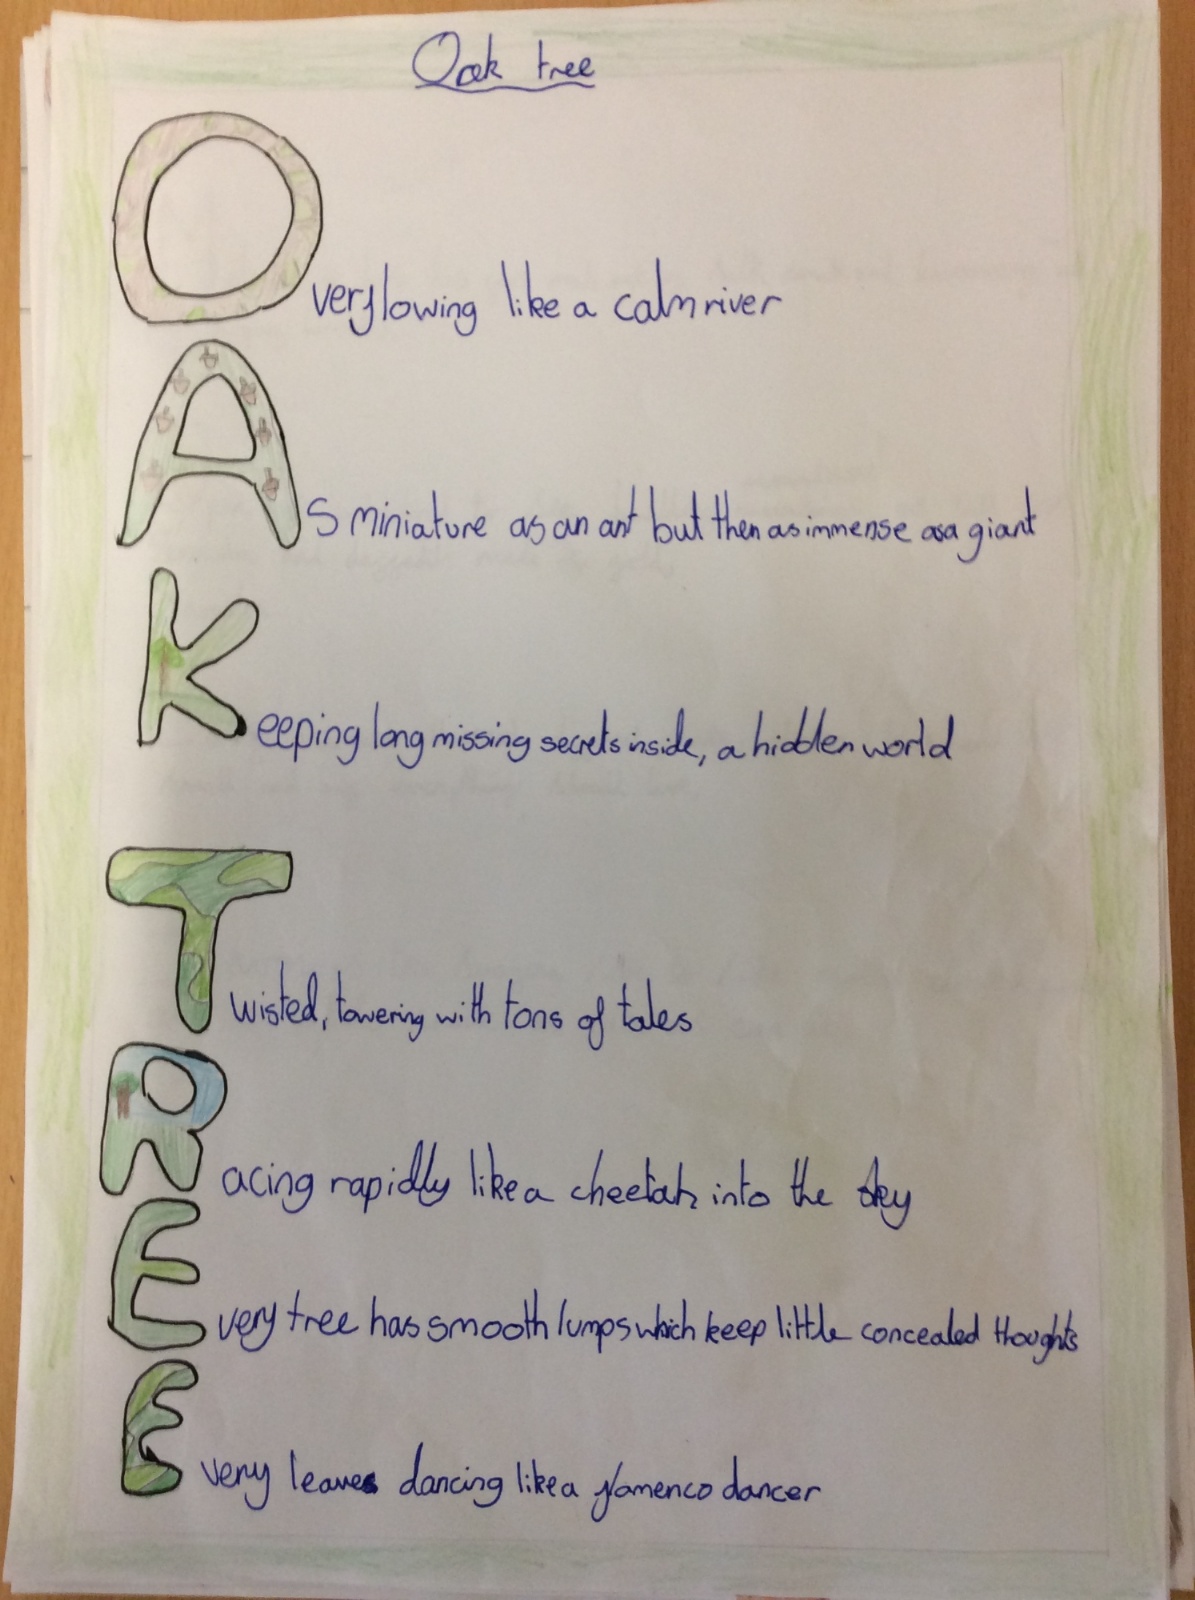 Oak tree
Overflowing like a calm river
As miniature as an ant but then as immense as a giant
Keeping long missing secrets inside, a hidden world
Twisted, towering with tons of tales
Racing rapidly like a cheetah into the sky
Every tree has smooth lumps which keep little concealed thoughts
Every leaves dancing like a flamenco dancer